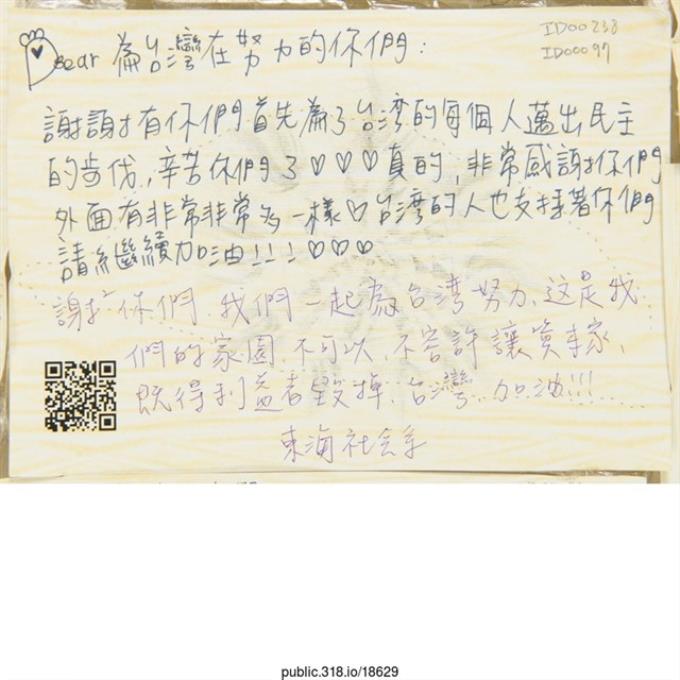 Dear 為台灣在努力的你們:
ID00238
ID00097
謝謝有你們首先為了台湾的每個人邁出民主
的步伐,辛苦你們了♡♡♡真的,非常感謝你們
外面有非常非常多一樣♡台湾的人也支持著你們
請繼續加油!!!♡♡♡
謝謝你們,我們一起為台湾努力,这是我
們的家園,不可以、不容許讓資本家、
既得利益者毀掉,台灣,加油!!!
東海社会系
public.318.io/18629